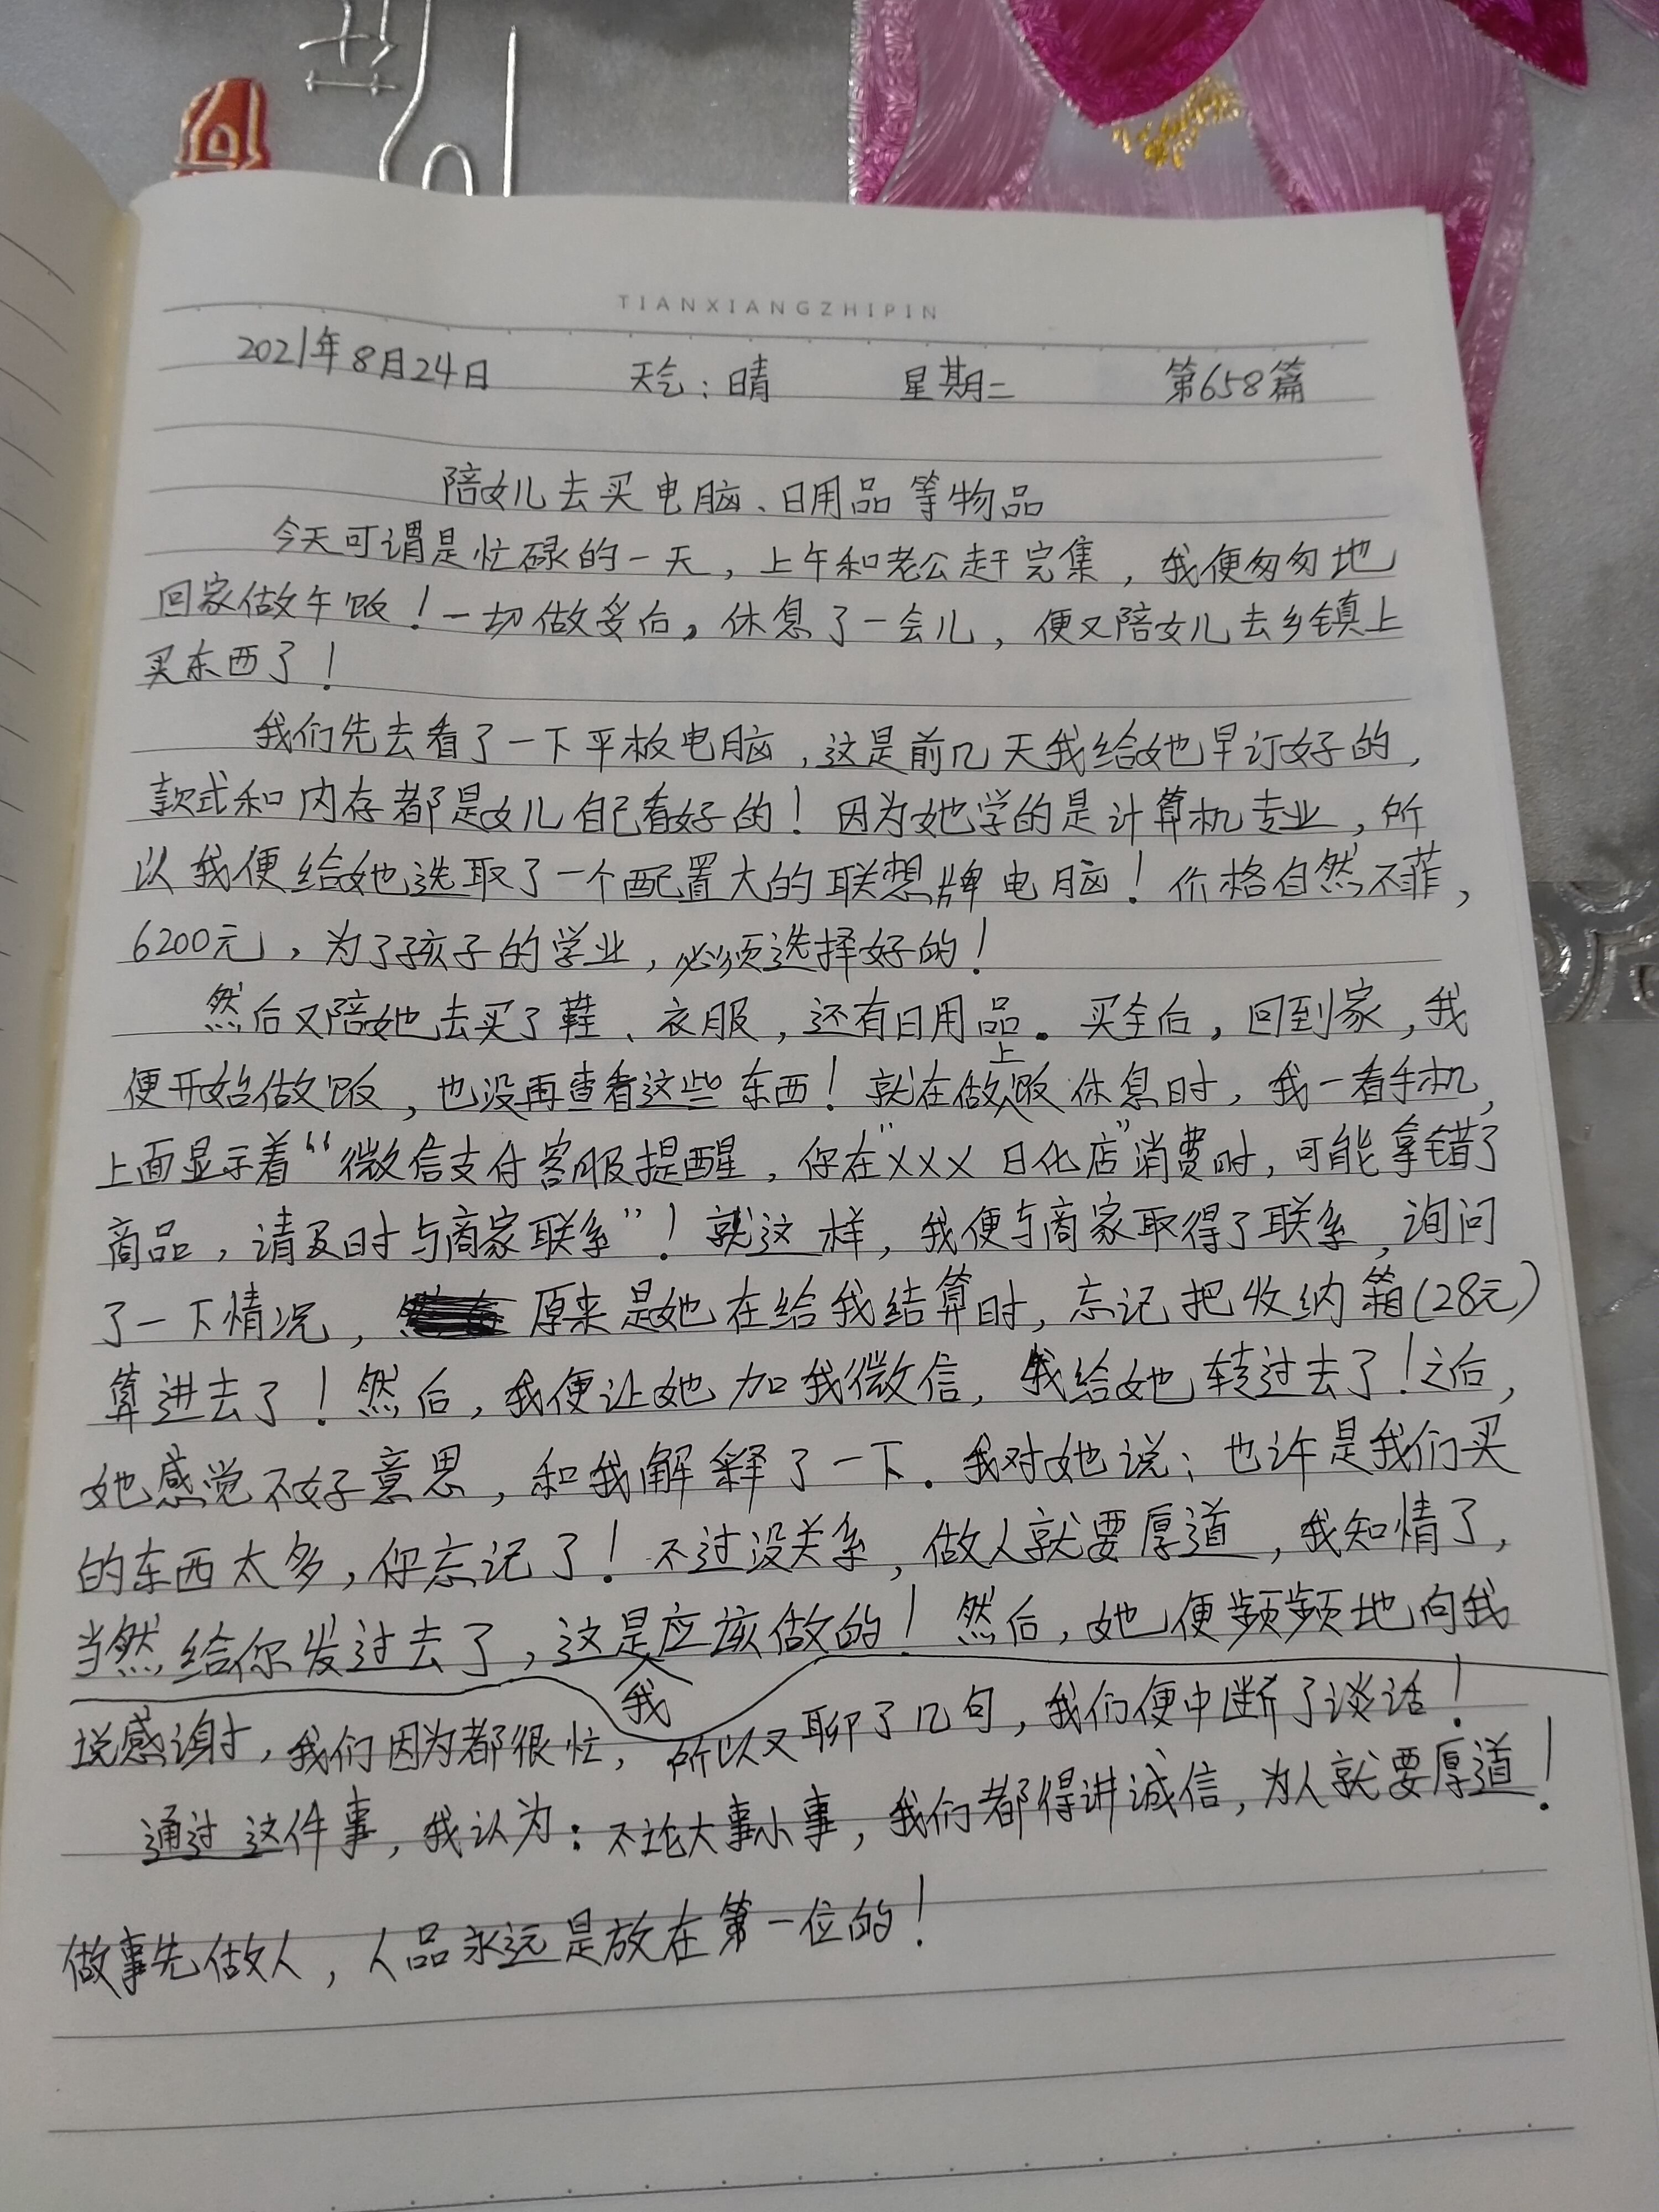 TIANXIANGZHIPIN
2021年8月24日 天气：晴 星期二 第658篇
陪女儿去买电脑、日用品等物品
今天可谓是忙碌的一天，上午和老公赶完集，我便匆匆地
回家做午饭！一切做妥后，休息了一会儿，便又陪女儿去乡镇上
买东西了！
我们先去看了一下平板电脑，这是前几天我给她早订好的，
款式和内存都是女儿自己看好的！因为她学的是计算机专业，所
以我便给她选取了一个配置大的联想牌电脑！价格自然不菲，
6200元，为了孩子的学业，必须选择好的！
然后又陪她去买了鞋、衣服，还有日用品。买全后，回到家，我
便开始做饭，也没再查看这些东西！就在做上饭休息时，我一看手机，
上面显示着“微信支付客服提醒，你在“XXX日化店”消费时，可能拿错了
商品，请及时与商家联系”！就这样，我便与商家取得了联系，询问
了一下情况，原来是她在给我结算时，忘记把收纳箱(28元)
算进去了！然后，我便让她加我微信，我给她转过去了！之后，
她感觉不好意思，和我解释了一下。我对她说：也许是我们买
的东西太多，你忘记了！不过没关系，做人就要厚道，我知情了，
当然给你发过去了，这是我应该做的！然后，她便频频地向我
说感谢，我们因为都很忙，所以又聊了几句，我们便中断了谈话！
通过这件事，我认为：不论大事小事，我们都得讲诚信，为人就要厚道！
做事先做人，人品永远是放在第一位的！